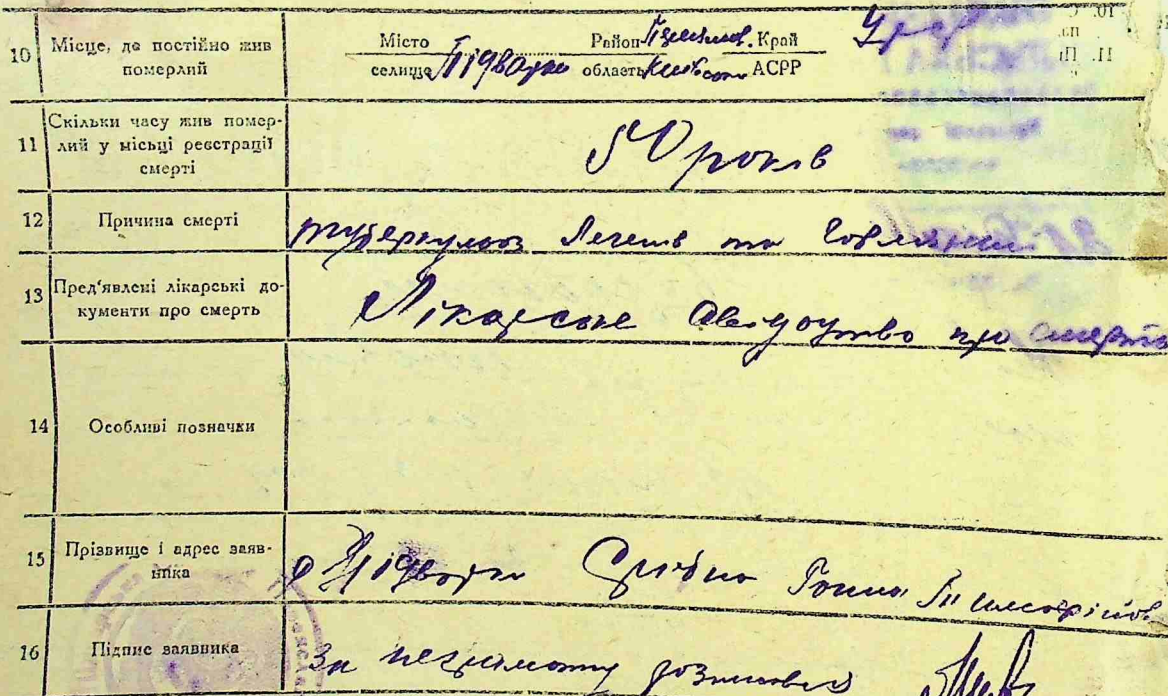 10 Місце, де постійно жив померлий
Місто Район Край
селище Підварки область Київсок АСРР
УРСР
11 Скільки часу жив помер-
лий у місці реєстрації
смерті
50 років
12 Причина смерті
туберкульоз Легенів та
13 Пред'явлені лікарські до-
кументи про смерть
Лікарське свідоцтво про смерть
14 Особливі позначки
15 Прізвище і адрес заяв-
ника
с Підварки Срібна Ганна
16 Підпис заявника
За неграмотну розписався